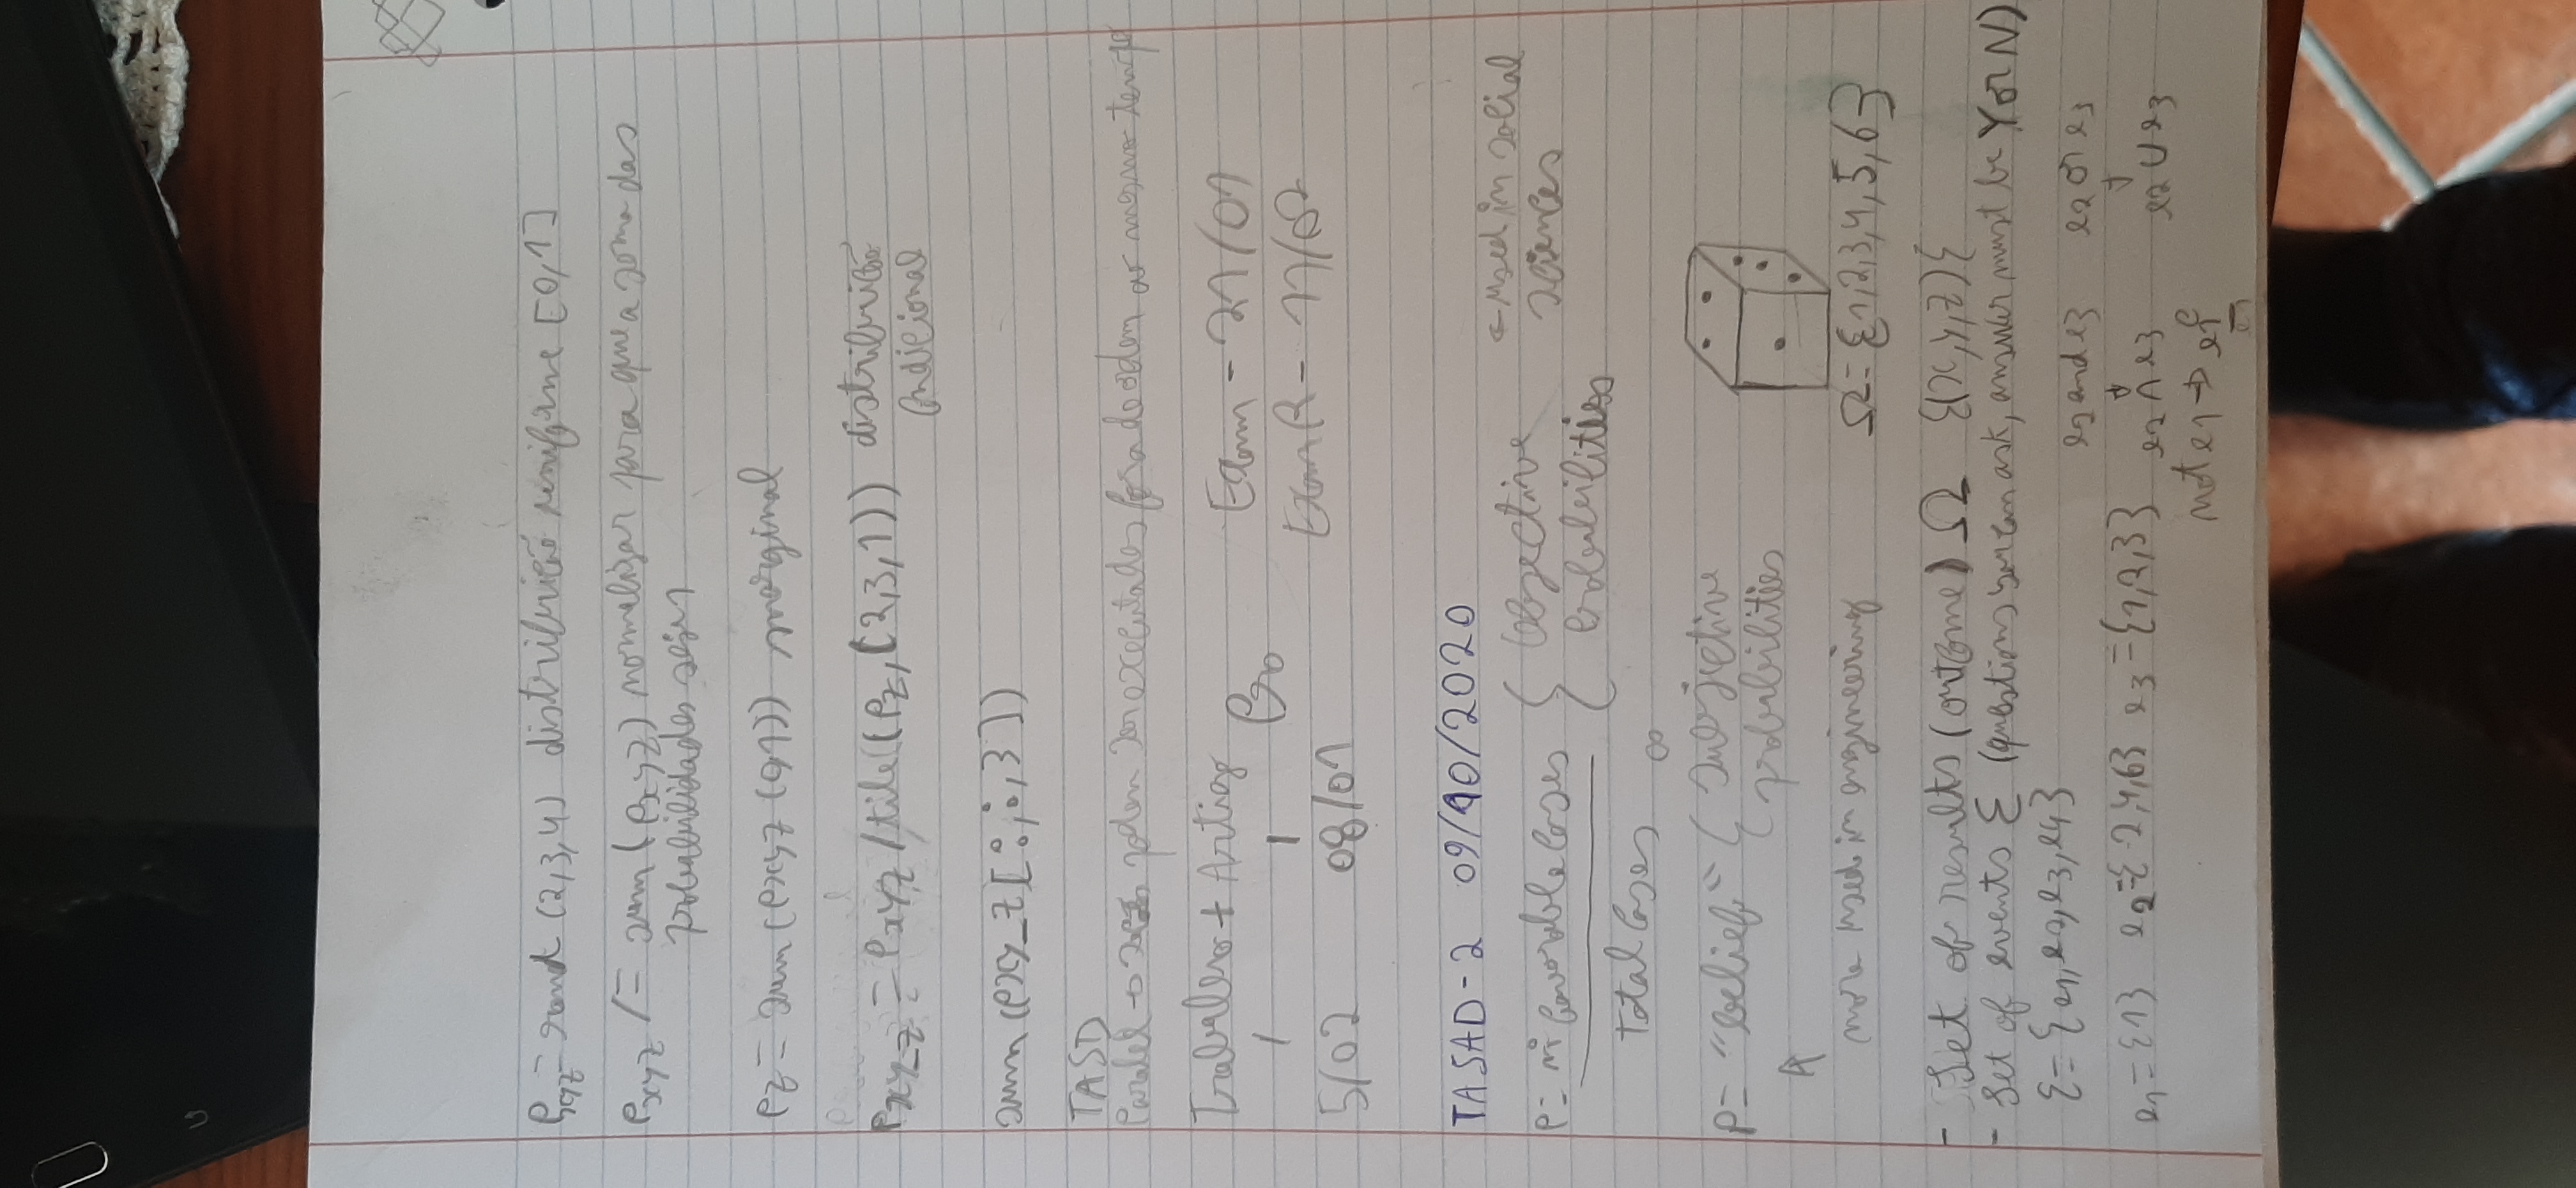 Pxyz = rand (2,3,4) distribuição uniforme [0,1]
Pxyz /= sum (Pxyz) normalizar para que a soma das
probabilidades seja 1
Pz = sum (Pxyz (0,1)) marginal
Pxy_z = Pxyz / tile((Pz, (2,3,1)) distribuição
condicional
sum (Pxy_z [:,:,3])
TASD
Paralel → podem ser executadas fora de ordem ao mesmo tempo
Trabalho + Artigo
Exam - 21/01
ExamR - 11/02
5/02 08/01
TASAD-2 09/10/2020
P = nº favorable cases { Objective ← used in social
total cases probabilities sciences
∞
P = "belief" { subjective
probabilities
more used in engineering
Ω = {1,2,3,4,5,6}
- Set of results (outcome) Ω {(x,y,z)}
- Set of events Ɛ (questions you can ask, answer must be Y or N)
Ɛ = {e1, e2, e3, e4}
e2 and e3 e2 or e3
e1 = {1} e2 = {2,4,6} e3 = {1,2,3} e2 ∩ e3 e2 ∪ e3
not e1 → e1ᶜ